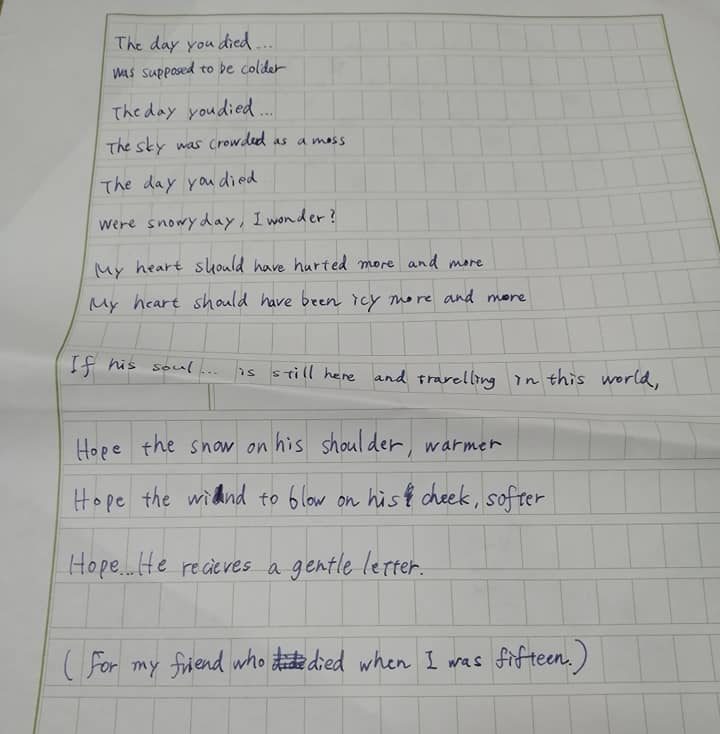 The day you died...
was supposed to be colder
The day you died...
The sky was crowded as a moss
The day you died
were snowy day, I wonder?
My heart should have hurted more and more
My heart should have been icy more and more
If his soul... is still here and travelling in this world,
Hope the snow on his shoulder, warmer
Hope the wind to blow on his cheek, softer
Hope...He recieves a gentle letter.
(For my friend who died when I was fifteen.)